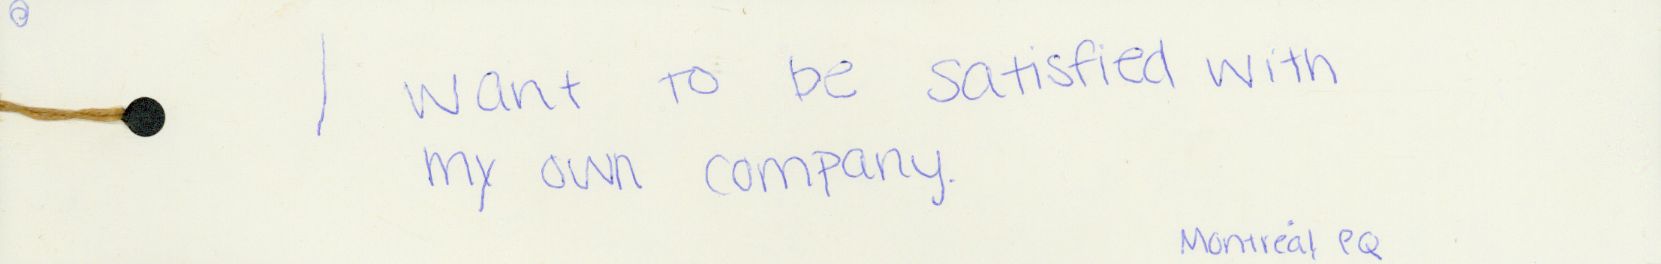 I want to be satisfied with
my own company.
Montréal PQ